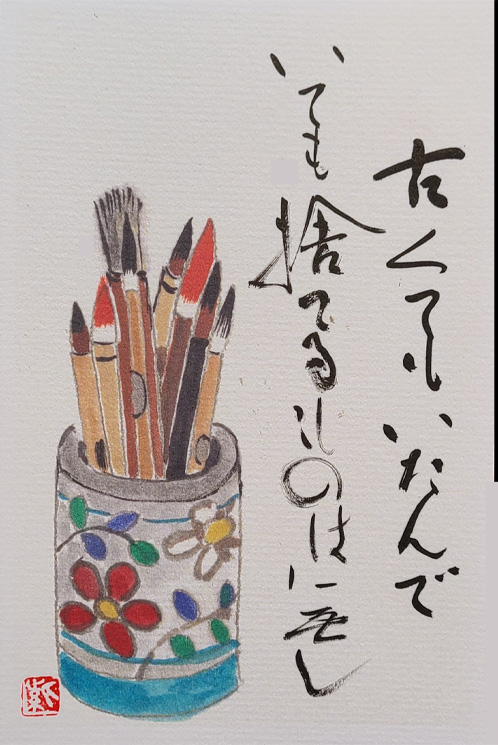 古くてもいたんで
いても捨てるものは無し